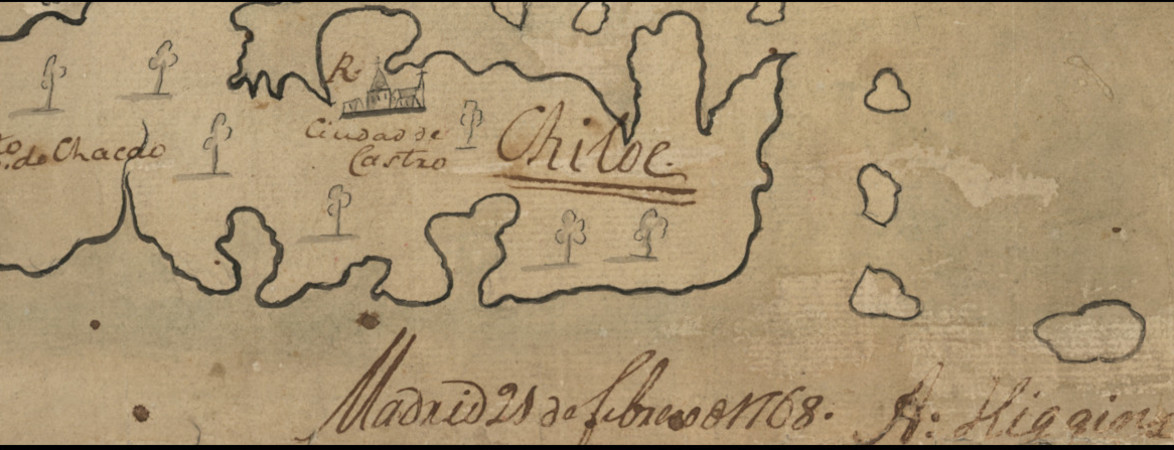 R.
Ciudad de
Castro
Chiloe.
de Chacao
Madrid 21 de febrero de 1768.
A: Higgins